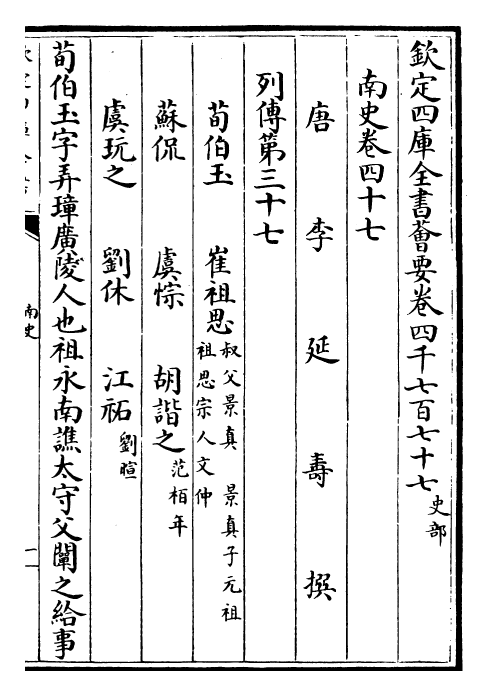 欽定四庫全書薈要卷四千七百七十七 史部
南史卷四十七
唐 李 延 壽 撰
列傳第三十七
荀伯玉 崔祖思 叔父景真 景真子元祖 祖思宗人文仲
蘇侃 虞悰 胡諧之 范栢年
虞玩之 劉休 江祏 劉暄
荀伯玉字弄璋廣陵人也祖永南譙太守父闡之給事
南史
一